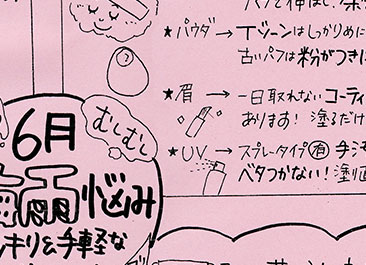 パフで伸ばし、ポ
★パウダ→Tゾーンはしっかりめに
古いパフは粉がつきに
★眉→一日取れないコーティ
あります！塗るだけ
★UV→スプレータイプ(有)手ジ
ベタつかない！塗り直
むしむし
6月
雨悩み
キリ&手軽な